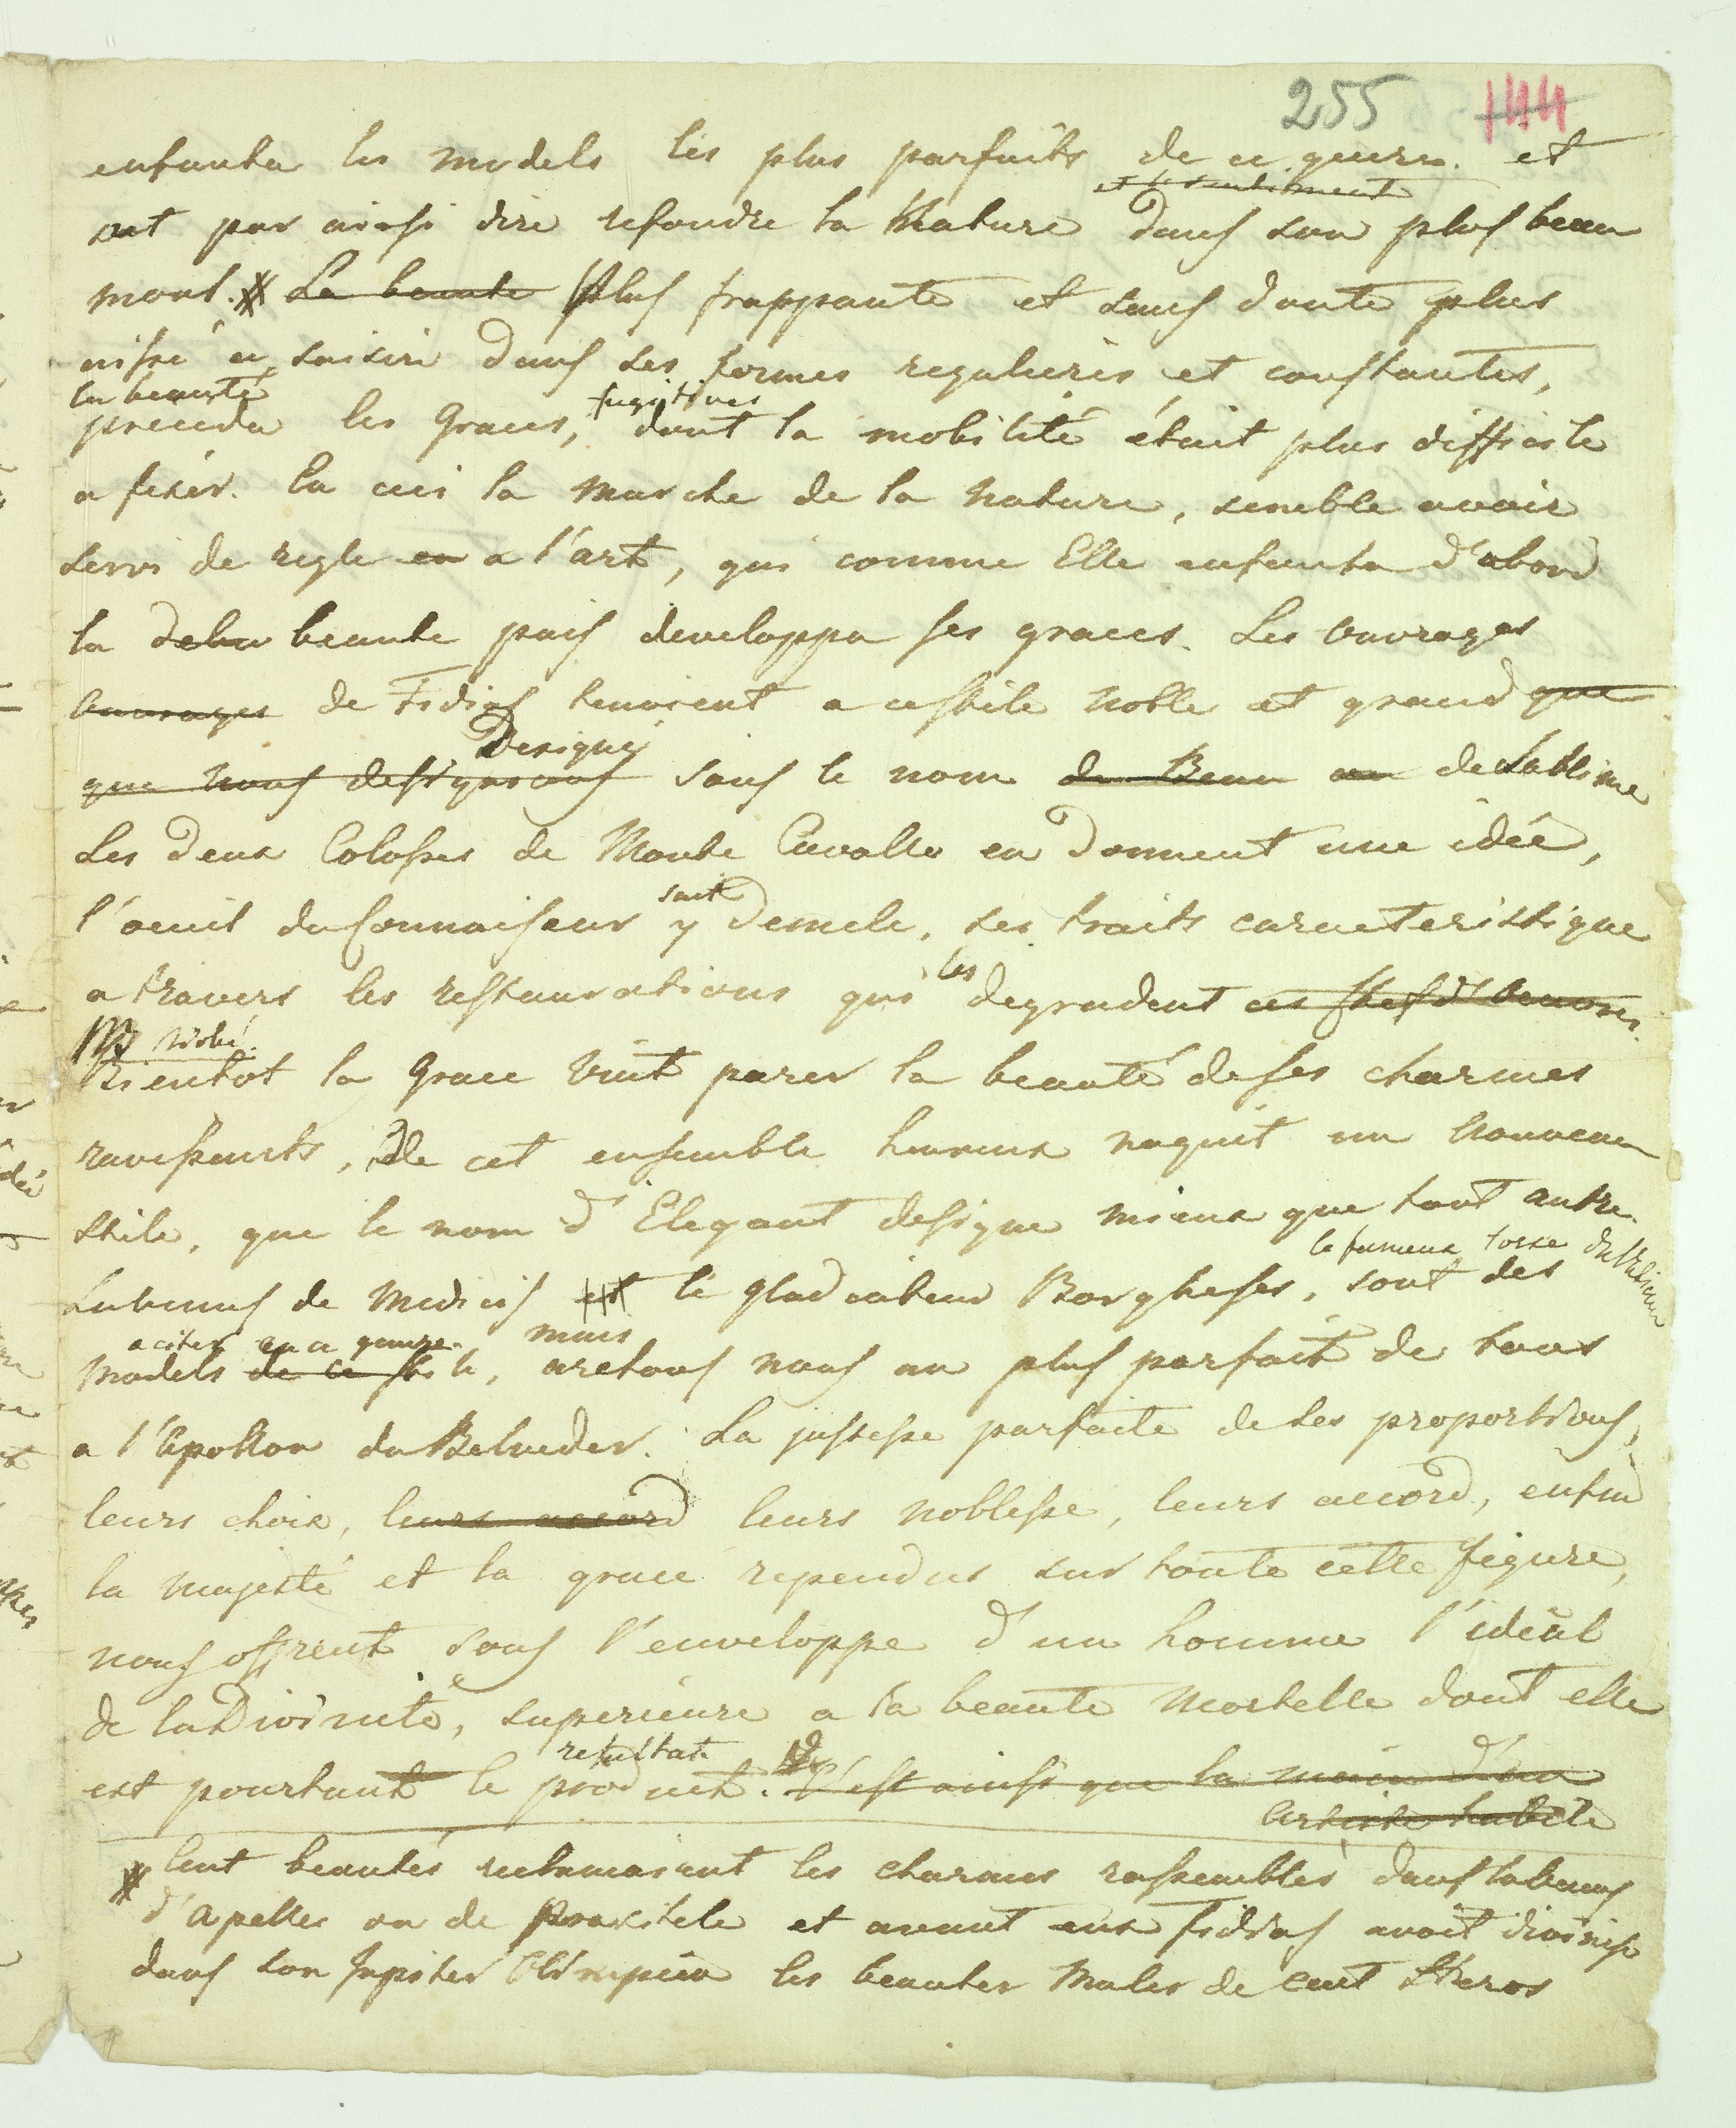 255 144
enfanta les models les plus parfaits de ce genre. et
et le sentiment
sut par ainsi dire refondre la Nature dans son plus beau
moul. # La beaute Plus frappante et sans doute plus
aisée a saisir dans ses formes regulieres et constantes,
la beauté fugitives
preceda les Graces, dont la mobilité était plus difficile
a fixér. En ceci la marche de la nature, semble avoir
servi de regle en a l'art, qui comme Elle enfanta d'abord
la beaute puis developpa ses graces. Les Ouvrages
Ouvrages de Fidias tenoient a ce stile noble et grand que
Designé
que nous designons sous le nom du Beau ou de Sublime
Les deux Colosses de Monte Cavallo en donnent une idée,
sait
l'oeuil du Connaisseur y demele, ses traits caracteristique
les
a travers les restaurations qui degradent ces chef d'oeuvres.
Niobé.
Bientot la Grace vint parer la beauté de ses charmes
ravissants, De cet ensemble heureux naquit un nouveau
stile, que le nom d'Elegant designe mieux que tout autre.
le fameux torse du Vatican
La Venus de Medicis et le gladiateur Borghese, sont des
a citer en ce genre. mais
models de ce stile, aretons nous au plus parfait de tous
a l'Apollon du Belveder. La justesse parfaite de ses proportions,
leurs choix, leurs accord leurs noblesse, leurs accord, enfin
la majesté et la grace rependus sur toute cette figure,
nous offrent sous l'enveloppe d'un homme l'idéal
de la Divinité, superieure a la beaute mortelle dont elle
resultat
est pourtant le produit. C'est ainsi que la main d'un
Artiste habile
# Cent beautés reclamaient les charmes rassemblés dans la Venus
d'Apelles ou de Praxitele et avant eux Fidias avoit divinisé
dans son Jupiter Olimpien les beautes males de cent Heros